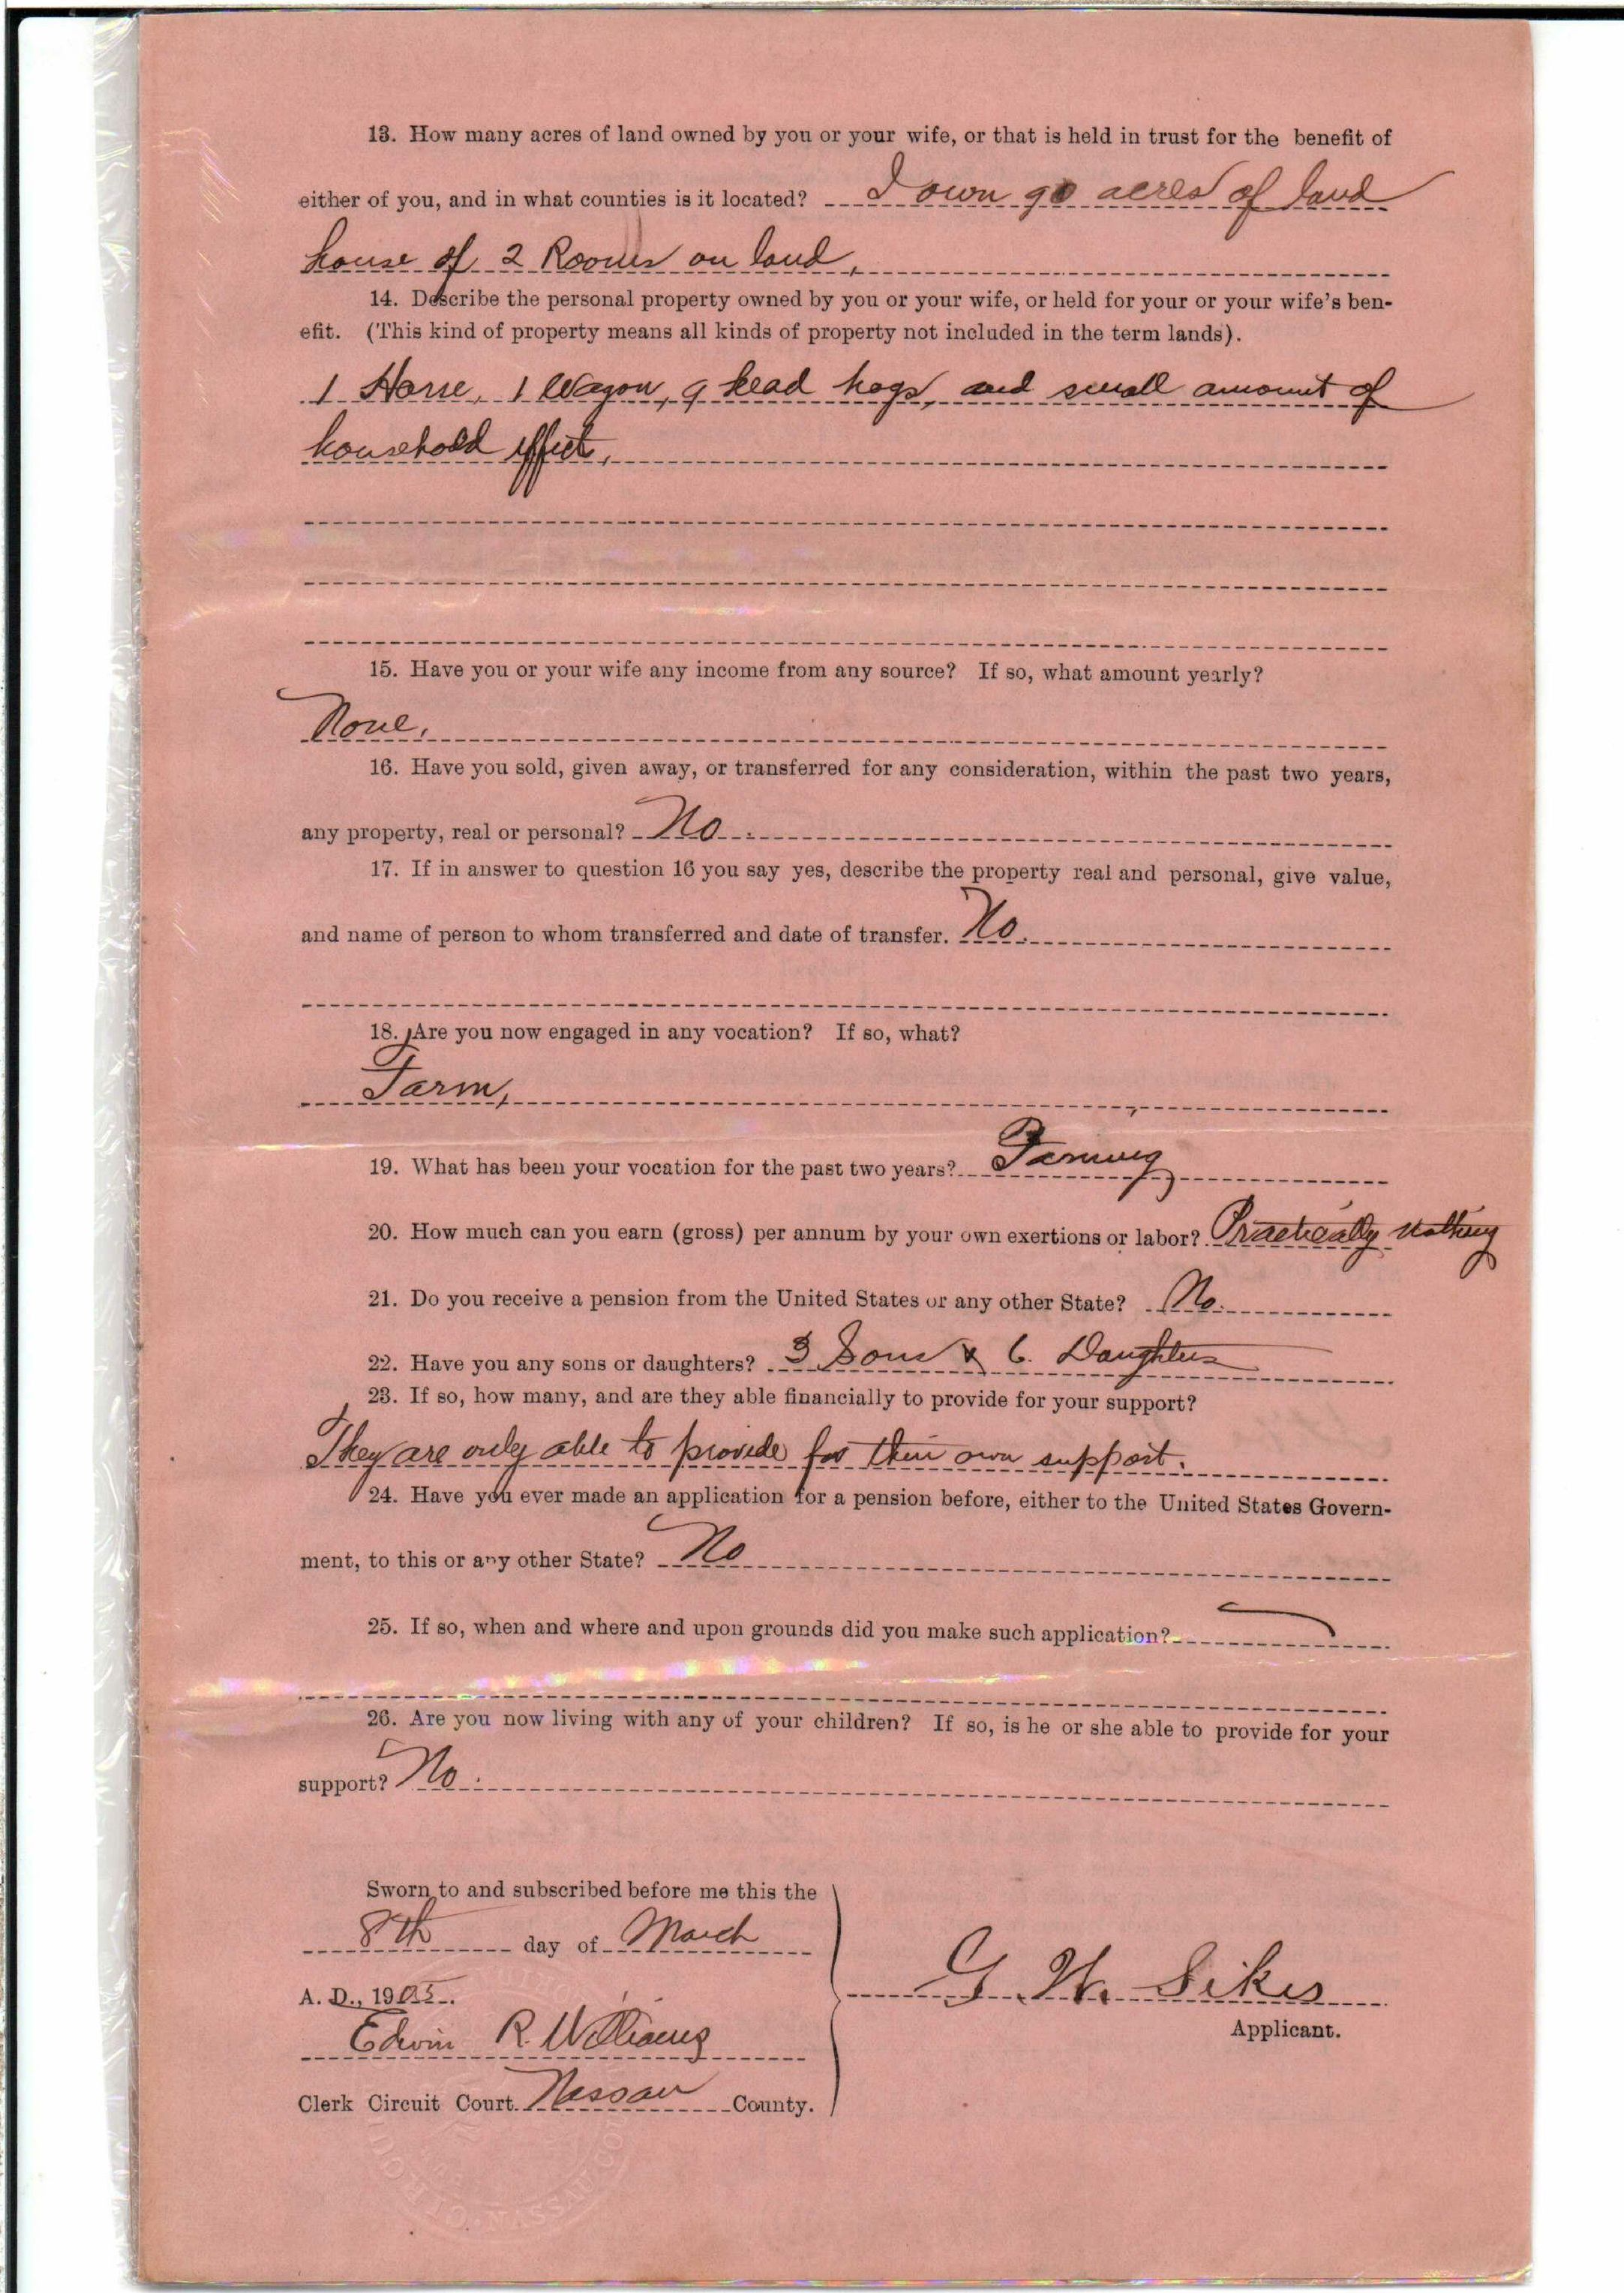 13. How many acres of land owned by you or your wife, or that is held in trust for the benefit of
either of you, and in what counties is it located? I own 90 acres of land
house of 2 Rooms on land,
14. Describe the personal property owned by you or your wife, or held for your or your wife's ben-
efit. (This kind of property means all kinds of property not included in the term lands).
1 Horse, 1 Wagon, 9 head hogs, and small amount of
household effects,
15. Have you or your wife any income from any source? If so, what amount yearly?
None.
16. Have you sold, given away, or transferred for any consideration, within the past two years,
any property, real or personal? No.
17. If in answer to question 16 you say yes, describe the property real and personal, give value,
and name of person to whom transferred and date of transfer. No.
18. Are you now engaged in any vocation? If so, what?
Farm,
19. What has been your vocation for the past two years? Farming
20. How much can you earn (gross) per annum by your own exertions or labor? Practically nothing
21. Do you receive a pension from the United States or any other State? No.
22. Have you any sons or daughters? 3 Sons & 6. Daughters
23. If so, how many, and are they able financially to provide for your support?
They are only able to provide for their own support.
24. Have you ever made an application for a pension before, either to the United States Govern-
ment, to this or any other State? No
25. If so, when and where and upon grounds did you make such application?
26. Are you now living with any of your children? If so, is he or she able to provide for your
support? No.
Sworn to and subscribed before me this the
8th day of March
A. D., 1905.
G. W. Sikes
Applicant.
Edwin R. Williams
Clerk Circuit Court Nassau County.
NASSAU CO